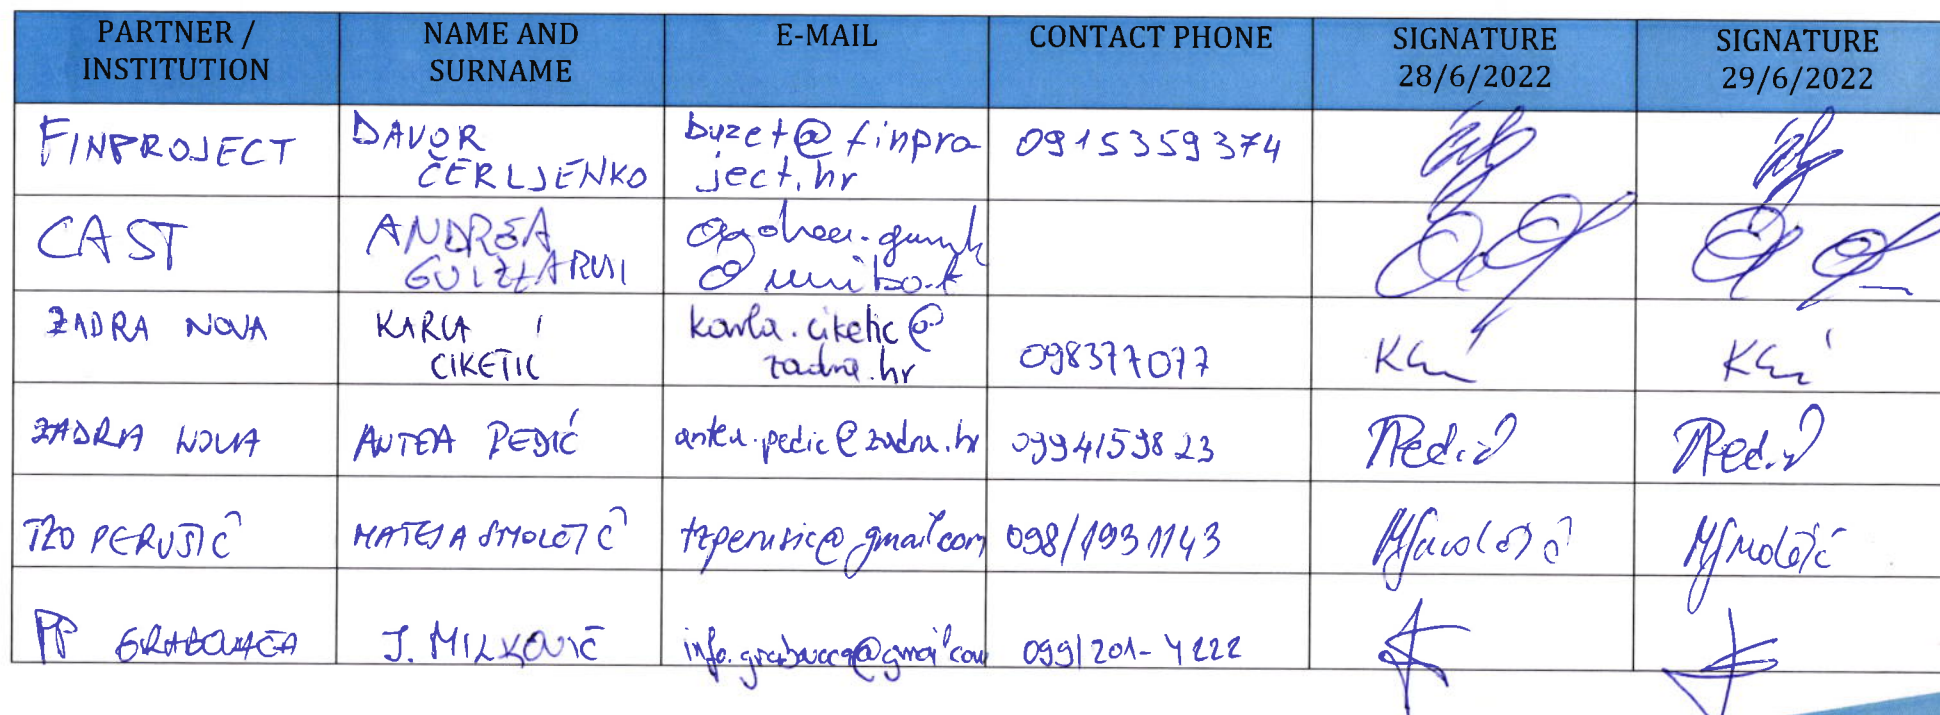 PARTNER / INSTITUTION NAME AND SURNAME E-MAIL CONTACT PHONE SIGNATURE 28/6/2022 SIGNATURE 29/6/2022
FINPROJECT DAVOR ČERLJENKO buzet@finpro ject.hr 0915359374
CAST ANDREA
ZADRA NOVA KARLA CIKETIĆ karla.ciketic@ zadra.hr 098377077
ZADRA NOVA ANTEA PEDIĆ antea.pedic@zadra.hr 0994159823 Pedić Pedić
TZO PERUŠIĆ MATEJA SMOLČIĆ tzperusic@gmail.com 098/1931143
PP GRABOVAČA J. MILKOVIĆ info.grabovaca@gmail.com 099/201-4222